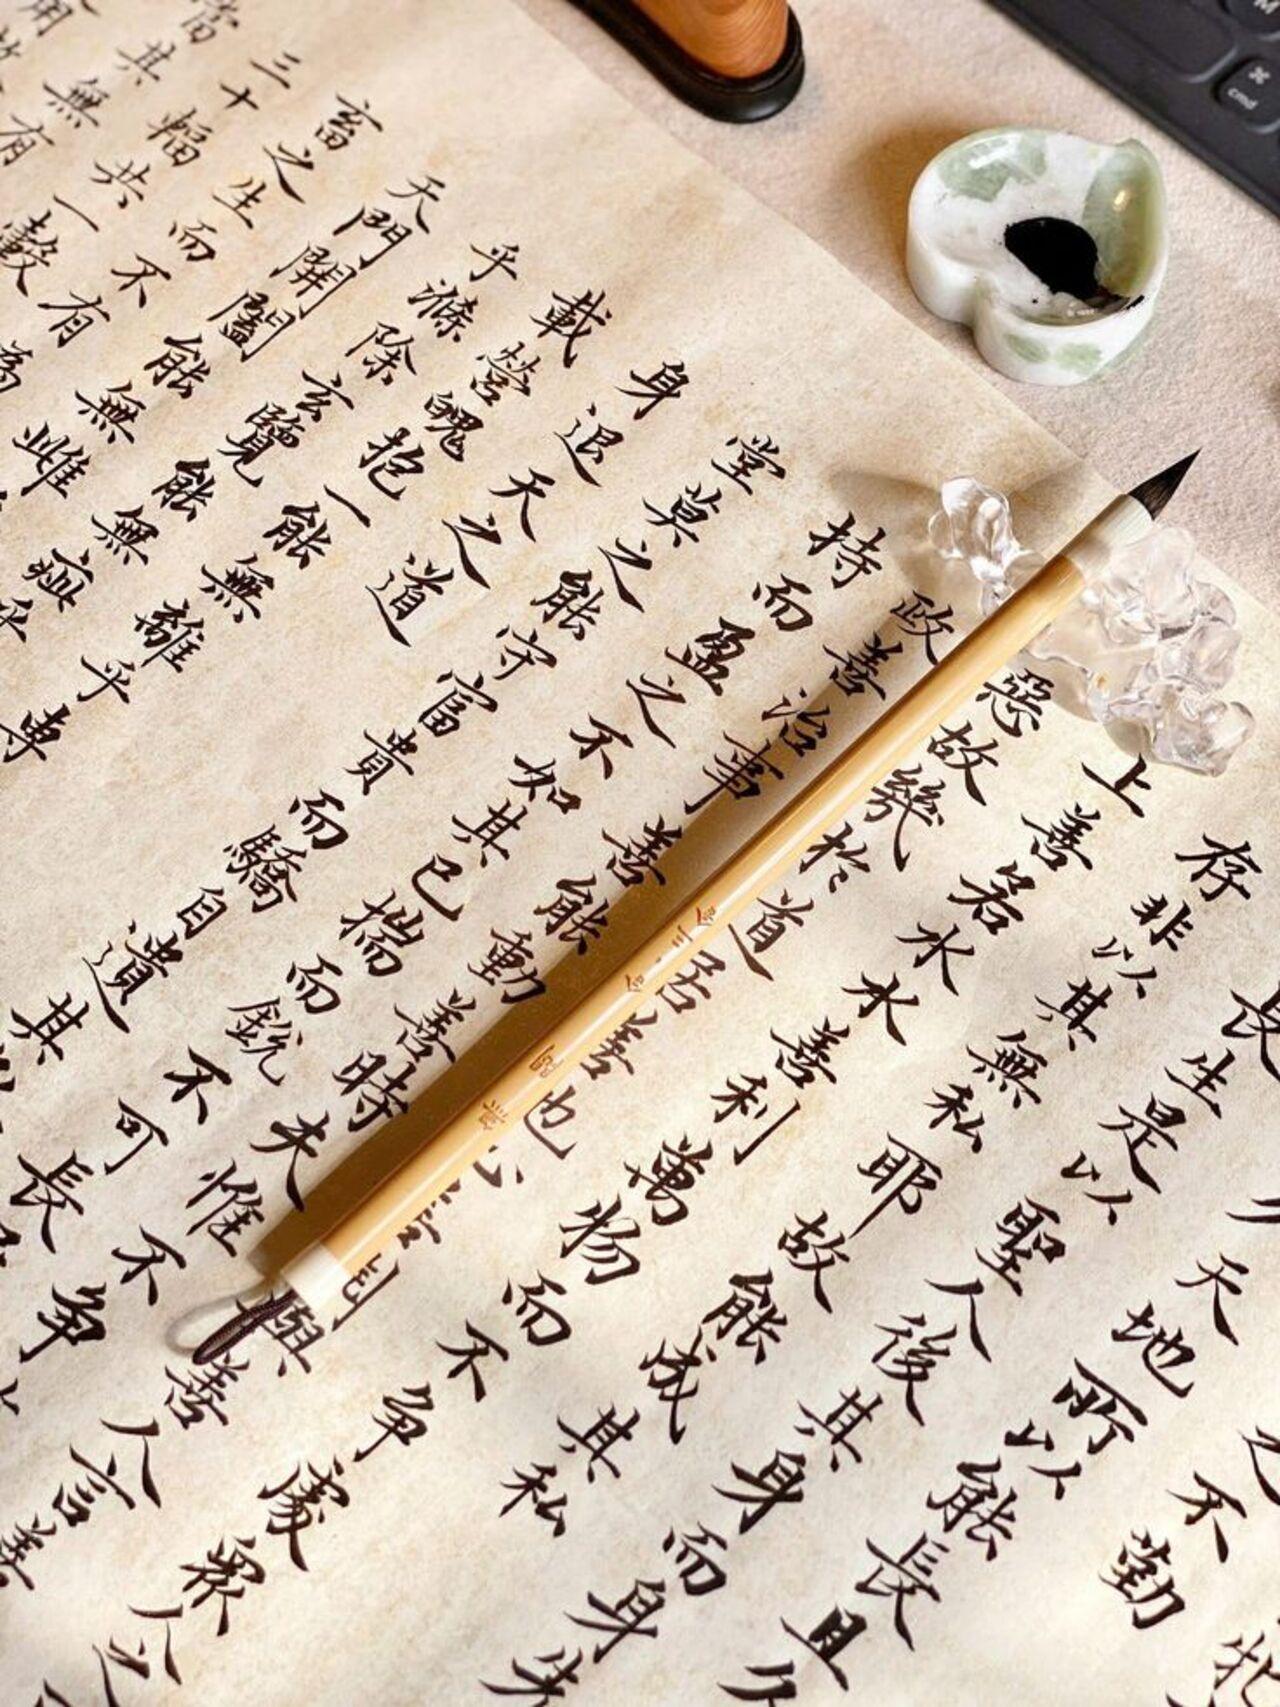 之不勤
久天地所以能長且久
長生是以聖人後其身而身先
存非以其無私耶故能成其私
上善若水水善利萬物而不爭處眾人之
惡故幾於道居善心善與善人言善
政善治事善能動善時夫惟不爭
持而盈之不如其已揣而銳不可長
堂莫之能守富貴而驕自遺其
身退天之道
載營魄抱一能無離乎專
乎滌除玄覽能無疵乎
天門開闔能無雌
畜之生而不有為
三十輻共一轂
當其無有